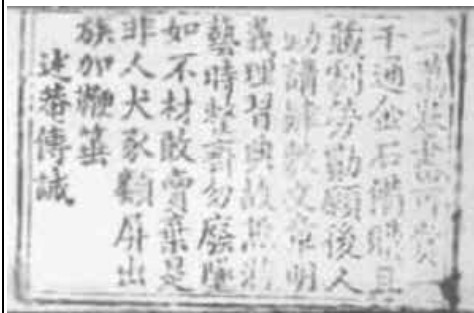 二萬卷書可貴一
千通金石備購且
藏劇勞勩願後人
講肄敷文章明
義理習典故兼游
藝時整齊勿廢墜
如不材敢賣棄是
非人犬豕類屏出
族加鞭箠
述菴傳誡